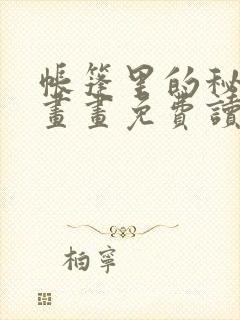 帳篷里的秘
畫畫免費讀
柏寧